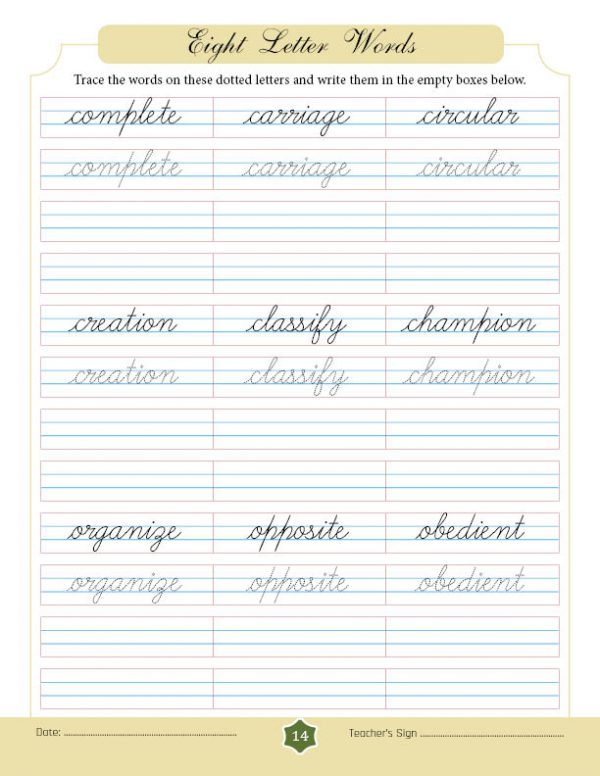 Eight Letter Words
Trace the words on these dotted letters and write them in the empty boxes below.
complete carriage circular
complete carriage circular
creation classify champion
creation classify champion
organize opposite obedient
organize opposite obedient
Date: ........................ 14 Teacher's Sign ........................